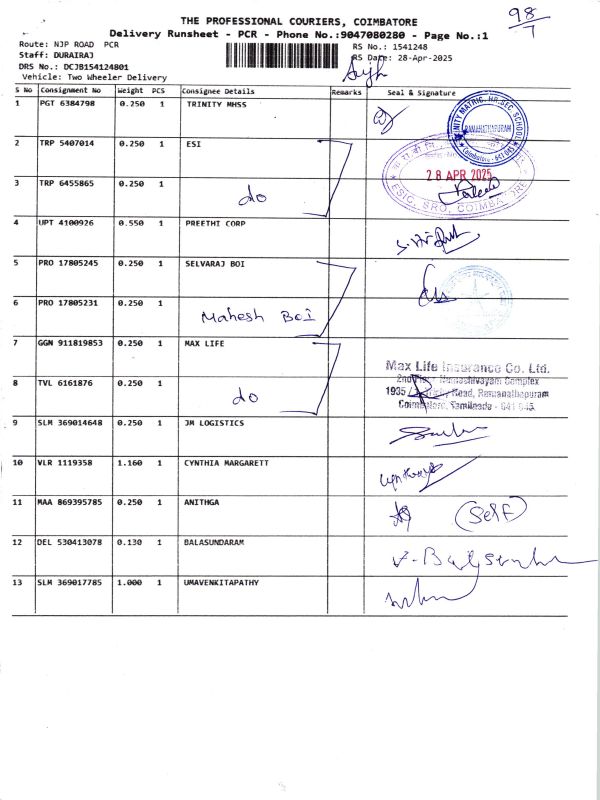 98/7
THE PROFESSIONAL COURIERS, COIMBATORE
Delivery Runsheet - PCR - Phone No.:9047080280 - Page No.:1
Route: NJP ROAD PCR
RS No.: 1541248
Staff: DURAIRAJ
RS Date: 28-Apr-2025
DRS No.: DCJB154124801
Vehicle: Two Wheeler Delivery
S No Consignment No Weight PCS Consignee Details Remarks Seal & Signature
1 PGT 6384798 0.250 1 TRINITY MHSS
TRINITY MATRIC. HR.SEC. SCHOOL
RAMANATHAPURAM
2 TRP 5407014 0.250 1 ESI
28 APR 2025
3 TRP 6455865 0.250 1
do
ESIC, SRO, COIMBATORE
4 UPT 4100926 0.550 1 PREETHI CORP
5 PRO 17805245 0.250 1 SELVARAJ BOI
6 PRO 17805231 0.250 1
Mahesh BOI
7 GGN 911819853 0.250 1 MAX LIFE
Max Life Insurance Co. Ltd.
8 TVL 6161876 0.250 1
do
Road, Ramanathapuram
Coimbatore, Tamilnadu - 641 045.
9 SLM 369014648 0.250 1 JM LOGISTICS
10 VLR 1119358 1.160 1 CYNTHIA MARGARETT
11 MAA 869395785 0.250 1 ANITHGA
(Self)
12 DEL 530413078 0.130 1 BALASUNDARAM
13 SLM 369017785 1.000 1 UMAVENKITAPATHY